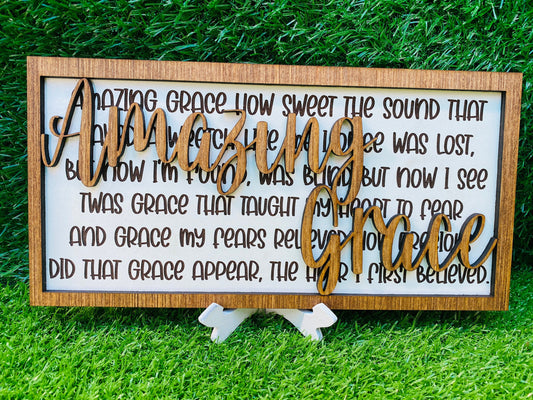 Amazing
Grace
AMAZING GRACE HOW SWEET THE SOUND THAT
WRETCH LIKE WAS LOST,
BUT NOW I'M FOUND, WAS BLIND BUT NOW I SEE
TWAS GRACE THAT TAUGHT MY HEART TO FEAR
AND GRACE MY FEARS RELIEVED HOW PRECIOUS
DID THAT GRACE APPEAR, THE HOUR I FIRST BELIEVED.